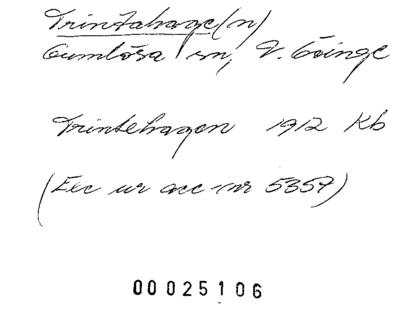 Trintahage(n)
Gumlösa sn, V. Göinge
Trintehagen 1912 Kb
(Exc ur acc.-nr 5357)
00025106